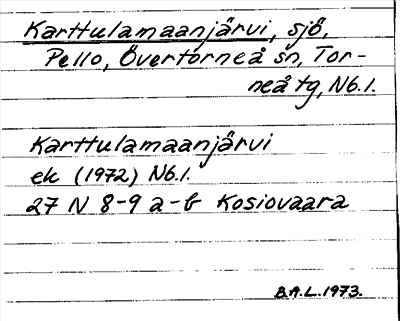 Karttulamaanjärvi, sjö,
Pello, Övertorneå sn, Tor-
neå tg, Nb.l.
Karttulamaanjärvi
ek (1972) Nb.l.
27 N 8-9 a-b Kosiovaara
B.A.L. 1973.